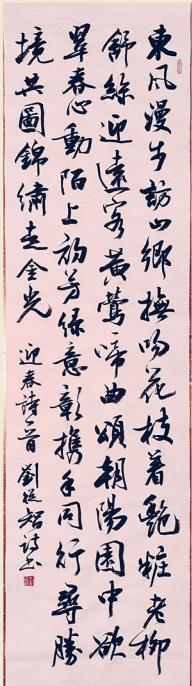 東風漫步訪山鄉撫吻花枝着艷粧老柳
舒絲迎遠客黃鶯啼曲頌朝陽園中欲
翠春心動陌上初芳綠意彰携手同行尋勝
境共圖錦繡走金光
迎春詩一首 劉廷智詩書